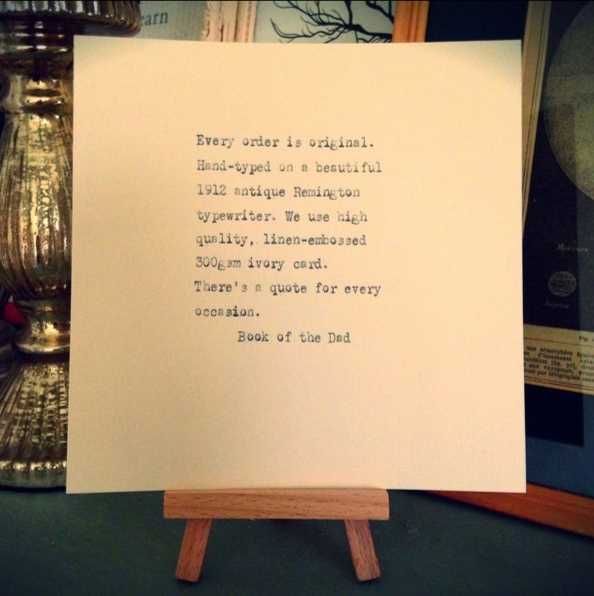 earn
Every order is original.
Hand-typed on a beautiful
1912 antique Remington
typewriter. We use high
quality, linen-embossed
300gsm ivory card.
There's a quote for every
occasion.
Book of the Dad